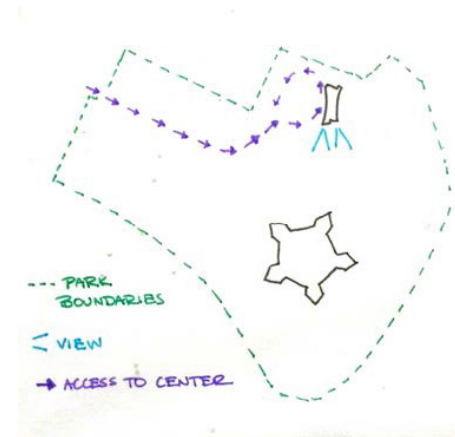 --- PARK
BOUNDARIES
< VIEW
→ ACCESS TO CENTER